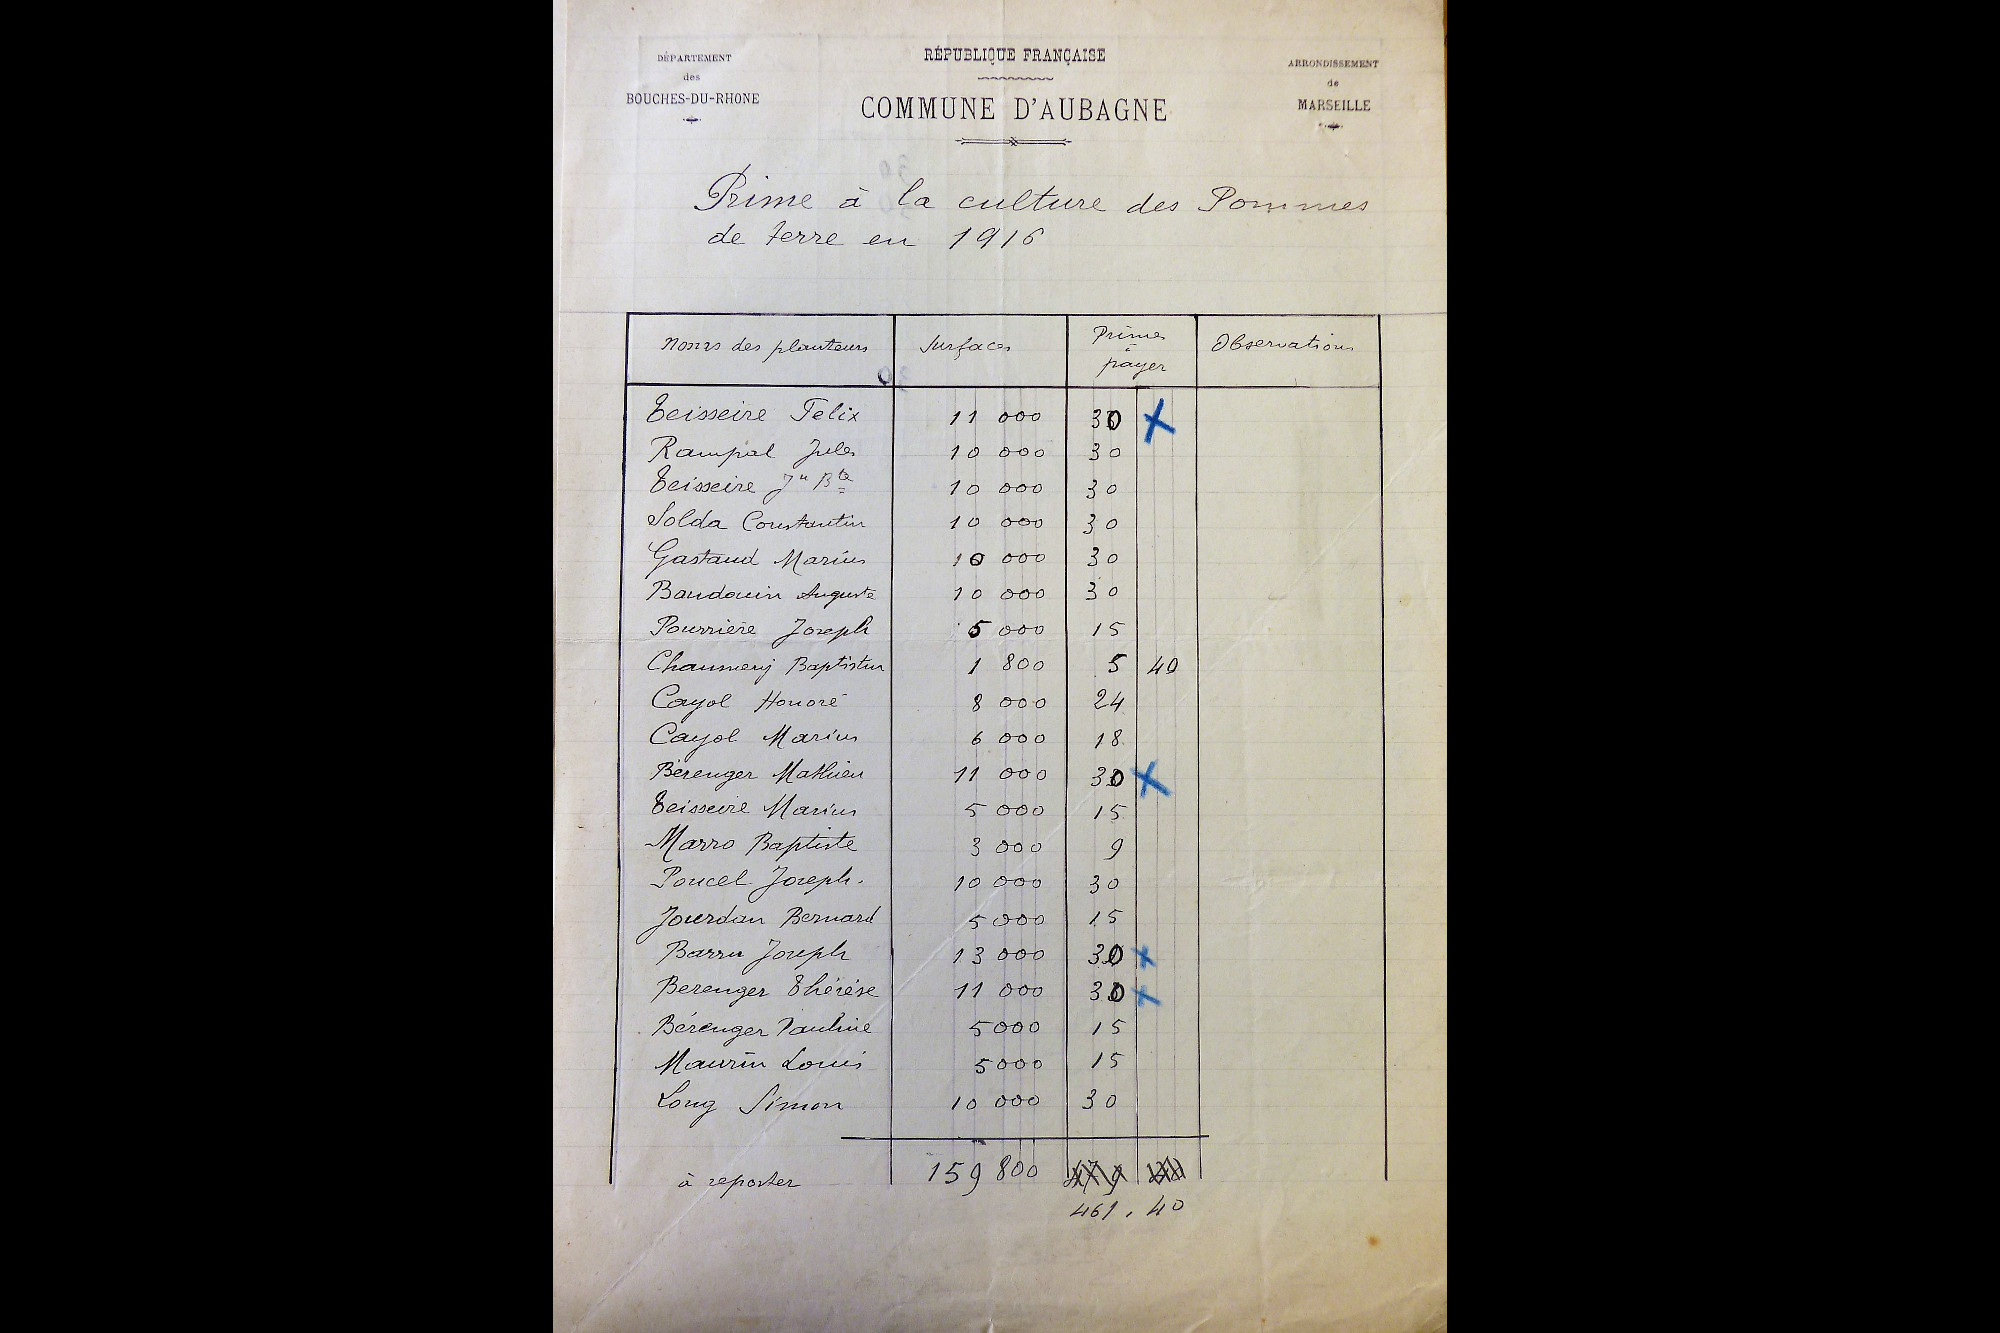 DÉPARTEMENT
des
BOUCHES-DU-RHONE
RÉPUBLIQUE FRANÇAISE
COMMUNE D'AUBAGNE
ARRONDISSEMENT
de
MARSEILLE
Prime à la culture des Pommes
de terre en 1916
Noms des planteurs Surfaces Primes à payer Observations
Teisseire Felix 11 000 30 X
Rampal Jules 10 000 30
Teisseire Jn Bte 10 000 30
Solda Constantin 10 000 30
Gastaud Marius 10 000 30
Baudouin Auguste 10 000 30
Pourrière Joseph 5 000 15
Chaumery Baptistin 1 800 5 40
Cayol Honoré 8 000 24
Cayol Marius 6 000 18
Bérenger Mathieu 11 000 30 X
Teisseire Marius 5 000 15
Marro Baptiste 3 000 9
Poucel Joseph. 10 000 30
Jourdan Bernard 5000 15
Joseph 13 000 30 X
Berenger Thérèse 11 000 30 X
Bérenger Pauline 5000 15
Maurin Louis 5000 15
Long Simon 10 000 30
à reporter 159 800
461. 40